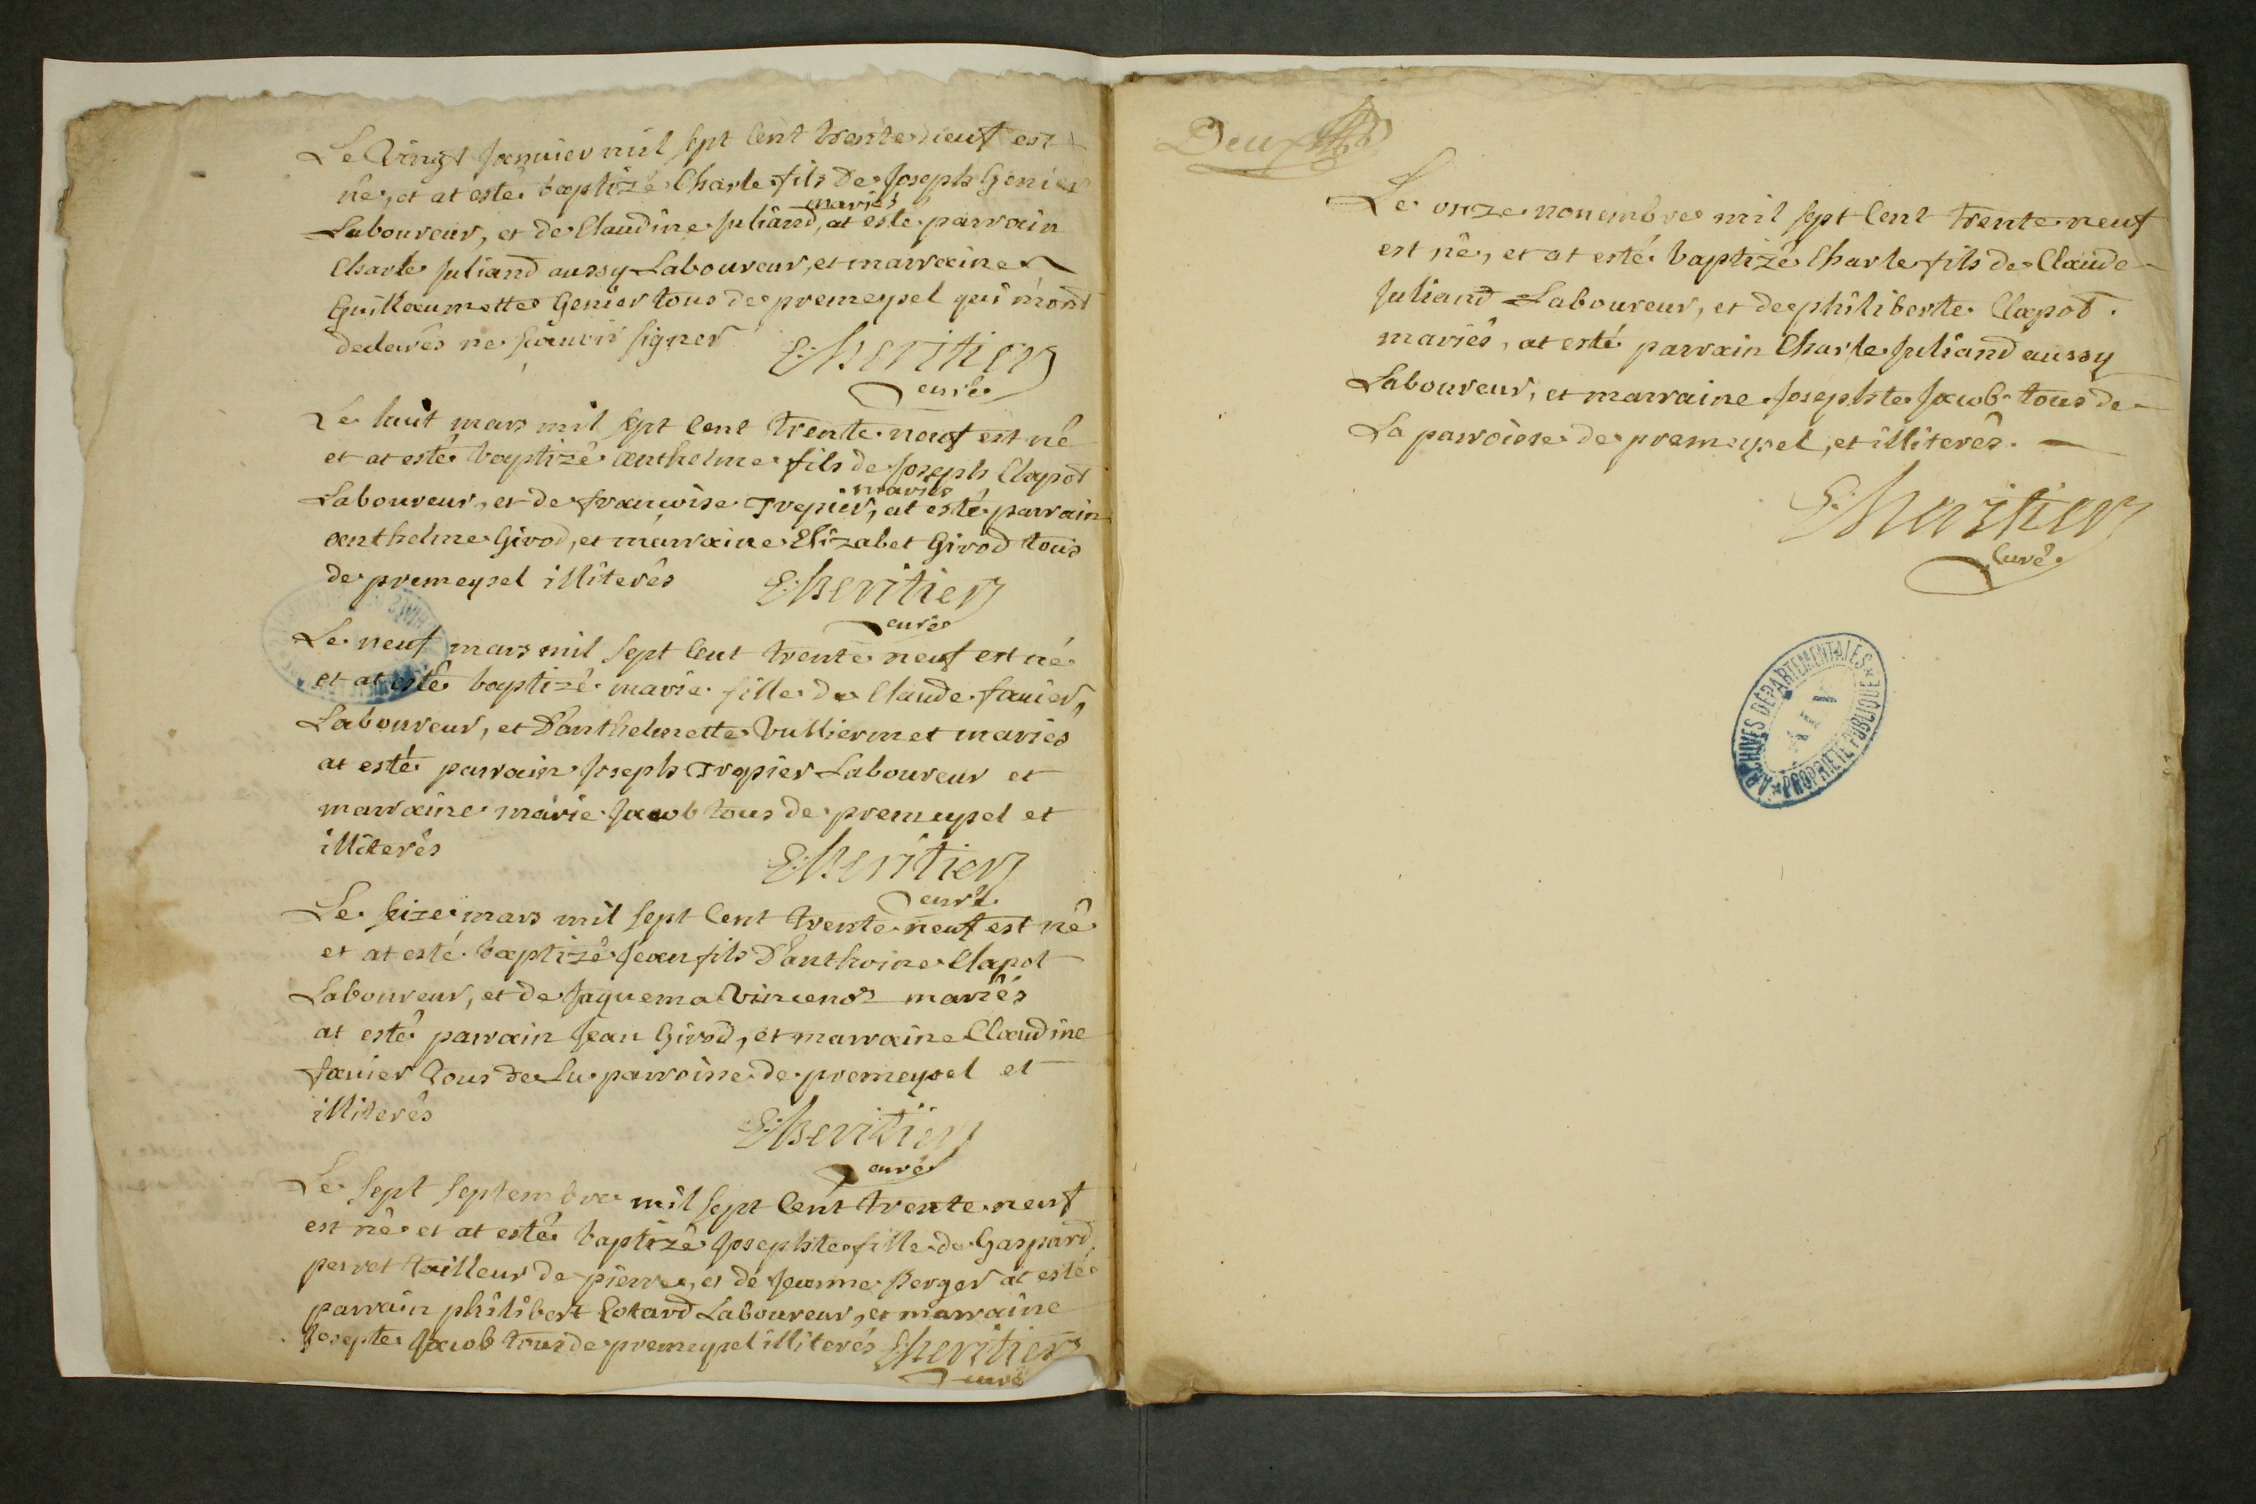 Le Vingt Janvier mil sept Cent trente neuf est
né, et at esté baptizé Charle fils de Joseph Genier
mariés
Laboureur, et de Claudine Juliand, at esté parrain
Charle Juliand aussy Laboureur, et marraine
Guillaumette Genier tous de premeysel qui m'ont
declarés ne scauoir signer
E: lheritier
curé
Le huit mars mil sept Cent trente neuf est né
et at esté baptizé anthelme fils de Joseph Clapot
mariés
Laboureur, et de francoise Trepier, at esté parrain
anthelme Girod, et marraine Elizabet Girod tous
de premeysel illiterés
E: lheritier
curé
Le neuf mars mil sept Cent trente neuf est né
et at esté baptizé marie fille de Claude fauier,
Laboureur, et D'anthelmette Vulliermet mariés
at esté parrain Joseph Trepier Laboureur et
marraine marie Jacob tous de premeysel et
illiterés
E: lheritier
curé
Le seize mars mil sept Cent trente neuf est né
et at esté baptizé Jean fils D'anthoine Clapot
Laboureur, et de Jaquema mariés
at esté parrain Jean Girod, et marraine Claudine
fauier tous de La parroisse de premeysel et
illiterés
E: lheritier
curé
Le sept septembre mil sept Cent trente neuf
est né et at esté baptizé Josephte fille de Gaspard
perret tailleur de pierre, et de Jeanne Berger at esté
parrain philibert Cotard Laboureur, et marraine
Josepte Jacob tous de premeysel illiterés E: lheritier
curé
Deux
Le onze nouembre mil sept Cent trente neuf
est né, et at esté baptizé Charle fils de Claude
Juliand Laboureur, et de philiberte Clapot
mariés, at esté parrain Charle Juliand aussy
Laboureur, et marraine Josephte Jacob tous de
La parroisse de premeysel, et illiterés.
E: lheritier
Curé
ARCHIVES DÉPARTEMENTALES
AIN
PROPRIÉTÉ PUBLIQUE